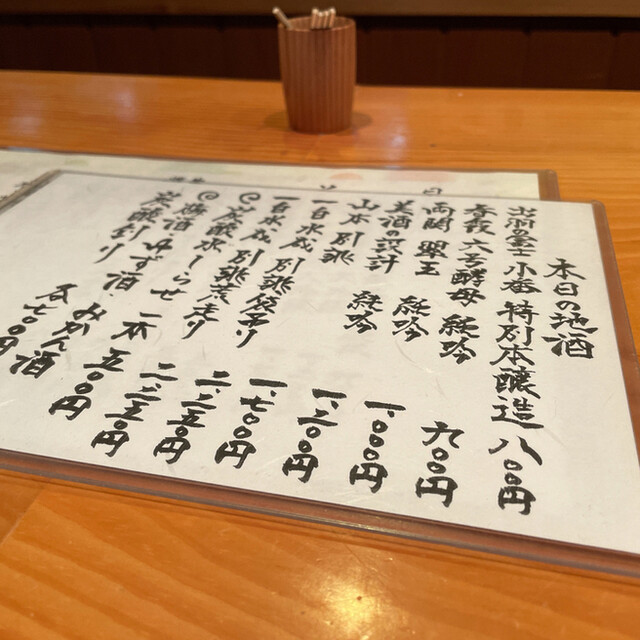 本日の地酒
出羽の富士 小番 特別本醸造 八〇〇円
春霞 六号酵母 純吟 九〇〇円
両関 翠玉 純吟 一、〇〇〇円
美酒の設計 純吟 一、二〇〇円
山本 別誂 一、七〇〇円
一白水成 別誂袋吊り 二、二五〇円
一白水成 別誂荒走り 二、二五〇円
◎炭酸水しらせ 一本 五〇〇円
◎梅酒 ゆず酒、みかん酒
炭酸割り 各七〇〇円